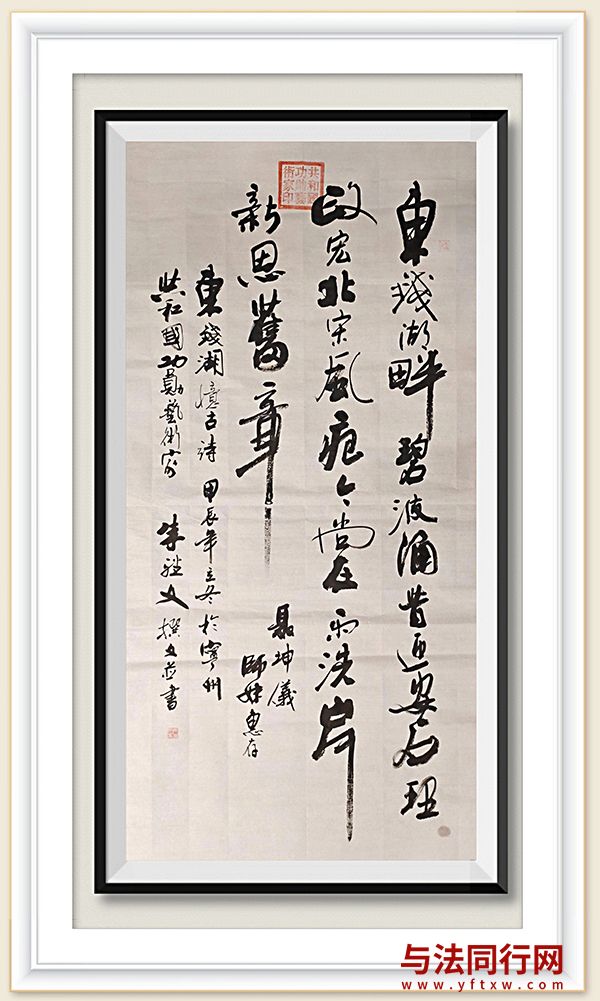 東錢湖畔 碧波涌昔迎安石理
政宏北宋風痕今尚在雨洗岸
新思舊章
聶坤儀
師妹惠存
東錢湖憶古詩 甲辰年立冬於寧州
共和國功勳藝術家 朱 文 撰文並書
共和國
功勳藝
術家印
与法同行网
www.yftxw.com